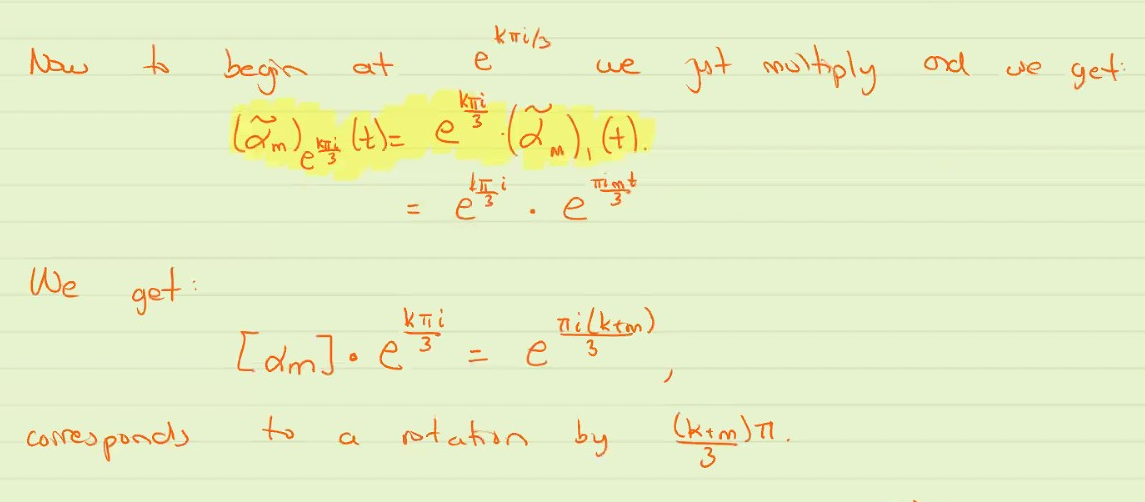 Now to begin at e^{kπi/3} we just multiply and we get:
(α̃_m)_{e^{kπi/3}}(t) = e^{kπi/3} · (α̃_m)_1(t).
= e^{kπ/3 i} · e^{πimt/3}
We get:
[α_m] · e^{kπi/3} = e^{πi(k+m)/3},
corresponds to a rotation by (k+m)π/3.